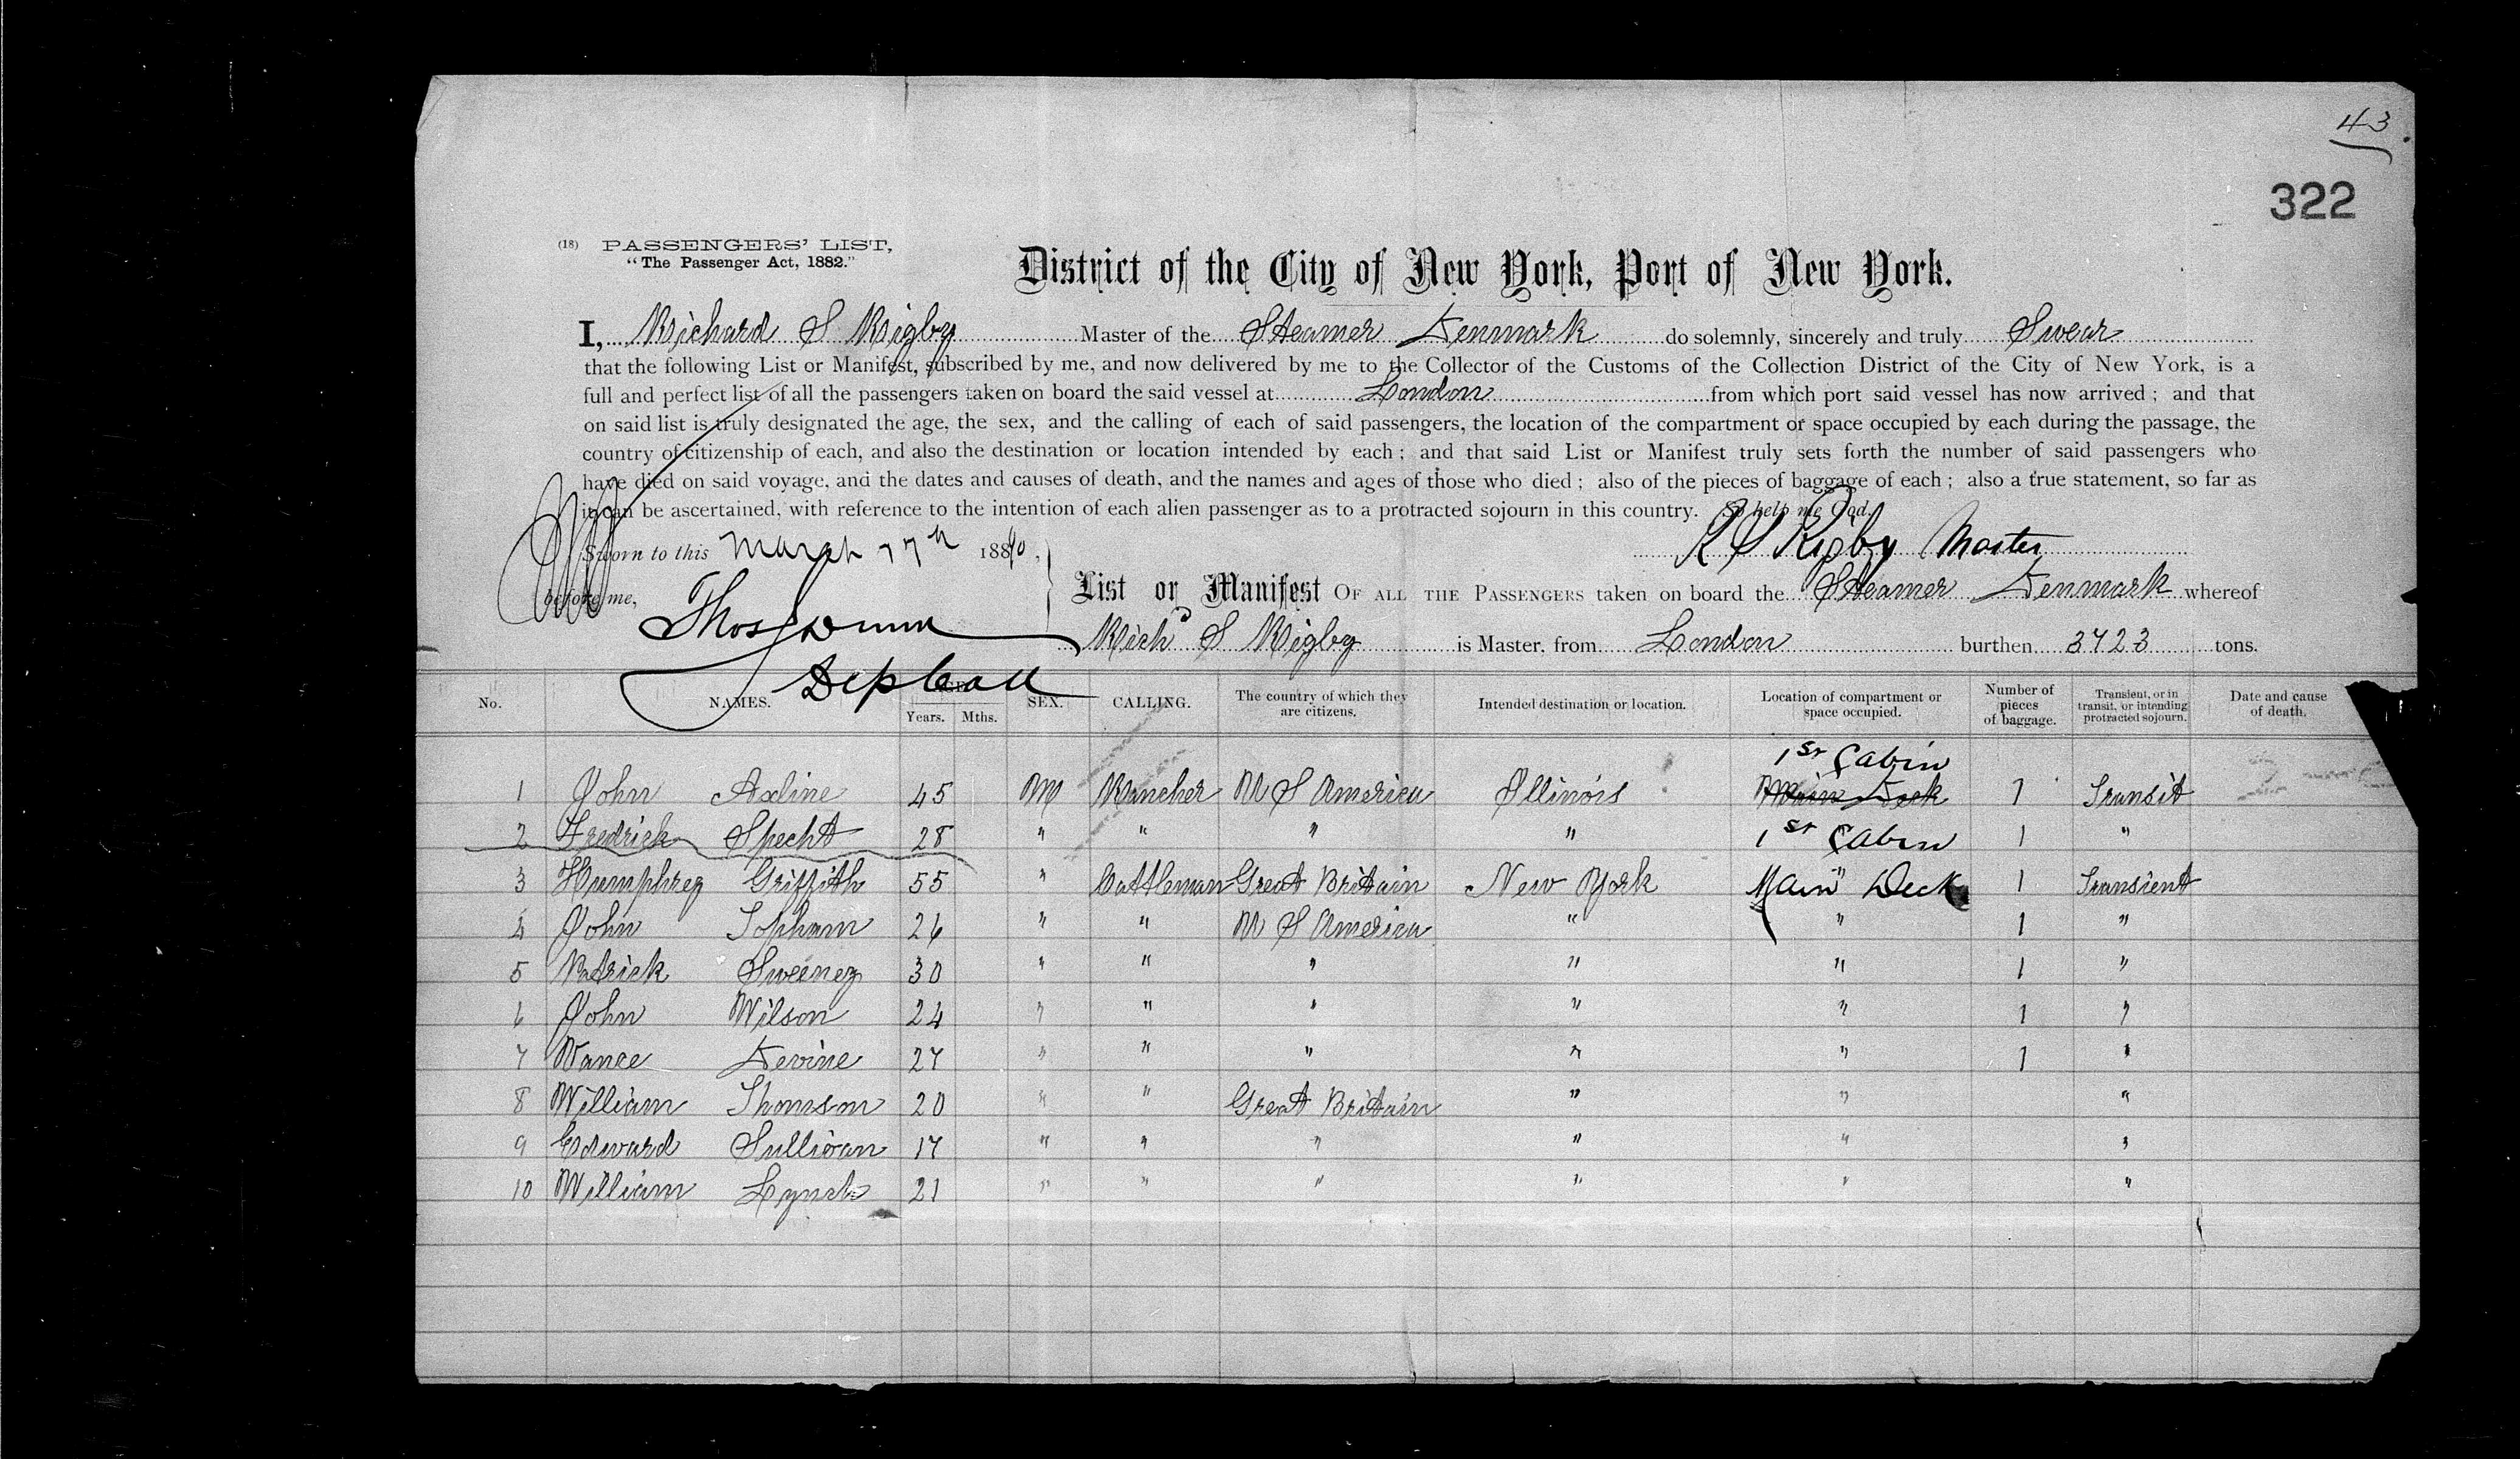 43
322
(18) PASSENGERS' LIST,
"The Passenger Act, 1882."
District of the City of New York, Port of New York.
I, Richard S Rigby Master of the Steamer Denmark do solemnly, sincerely and truly Swear
that the following List or Manifest, subscribed by me, and now delivered by me to the Collector of the Customs of the Collection District of the City of New York, is a
full and perfect list of all the passengers taken on board the said vessel at London from which port said vessel has now arrived; and that
on said list is truly designated the age, the sex, and the calling of each of said passengers, the location of the compartment or space occupied by each during the passage, the
country of citizenship of each, and also the destination or location intended by each; and that said List or Manifest truly sets forth the number of said passengers who
have died on said voyage, and the dates and causes of death, and the names and ages of those who died; also of the pieces of baggage of each; also a true statement, so far as
it can be ascertained, with reference to the intention of each alien passenger as to a protracted sojourn in this country. So help me God.
Sworn to this March 17th 1890, R S Rigby Master
before me, Thos Dunn Dep Coll
List or Manifest OF ALL THE PASSENGERS taken on board the Steamer Denmark whereof
Richd S Rigby is Master, from London burthen 3723 tons.
No. NAMES. AGE Years. Mths. SEX. CALLING. The country of which they are citizens. Intended destination or location. Location of compartment or space occupied. Number of pieces of baggage. Transient, or in transit, or intending protracted sojourn. Date and cause of death.
1st Cabin
1 John Axline 45 M Rancher U S America Illinois Main Deck 1 Transit
2 Fredrick Specht 28 " " " " 1st Cabin 1 "
3 Humphrey Griffith 55 " Cattleman Great Britain New York Main Deck 1 Transient
4 John Topham 26 " " U S America " " 1 "
5 Patrick Sweeney 30 " " " " " 1 "
6 John Wilson 24 " " " " " 1 "
7 Vance Devine 27 " " " " " 1 "
8 William Thomson 20 " " Great Britain " " "
9 Edward Sullivan 17 " " " " " "
10 William Lynch 21 " " " " " "